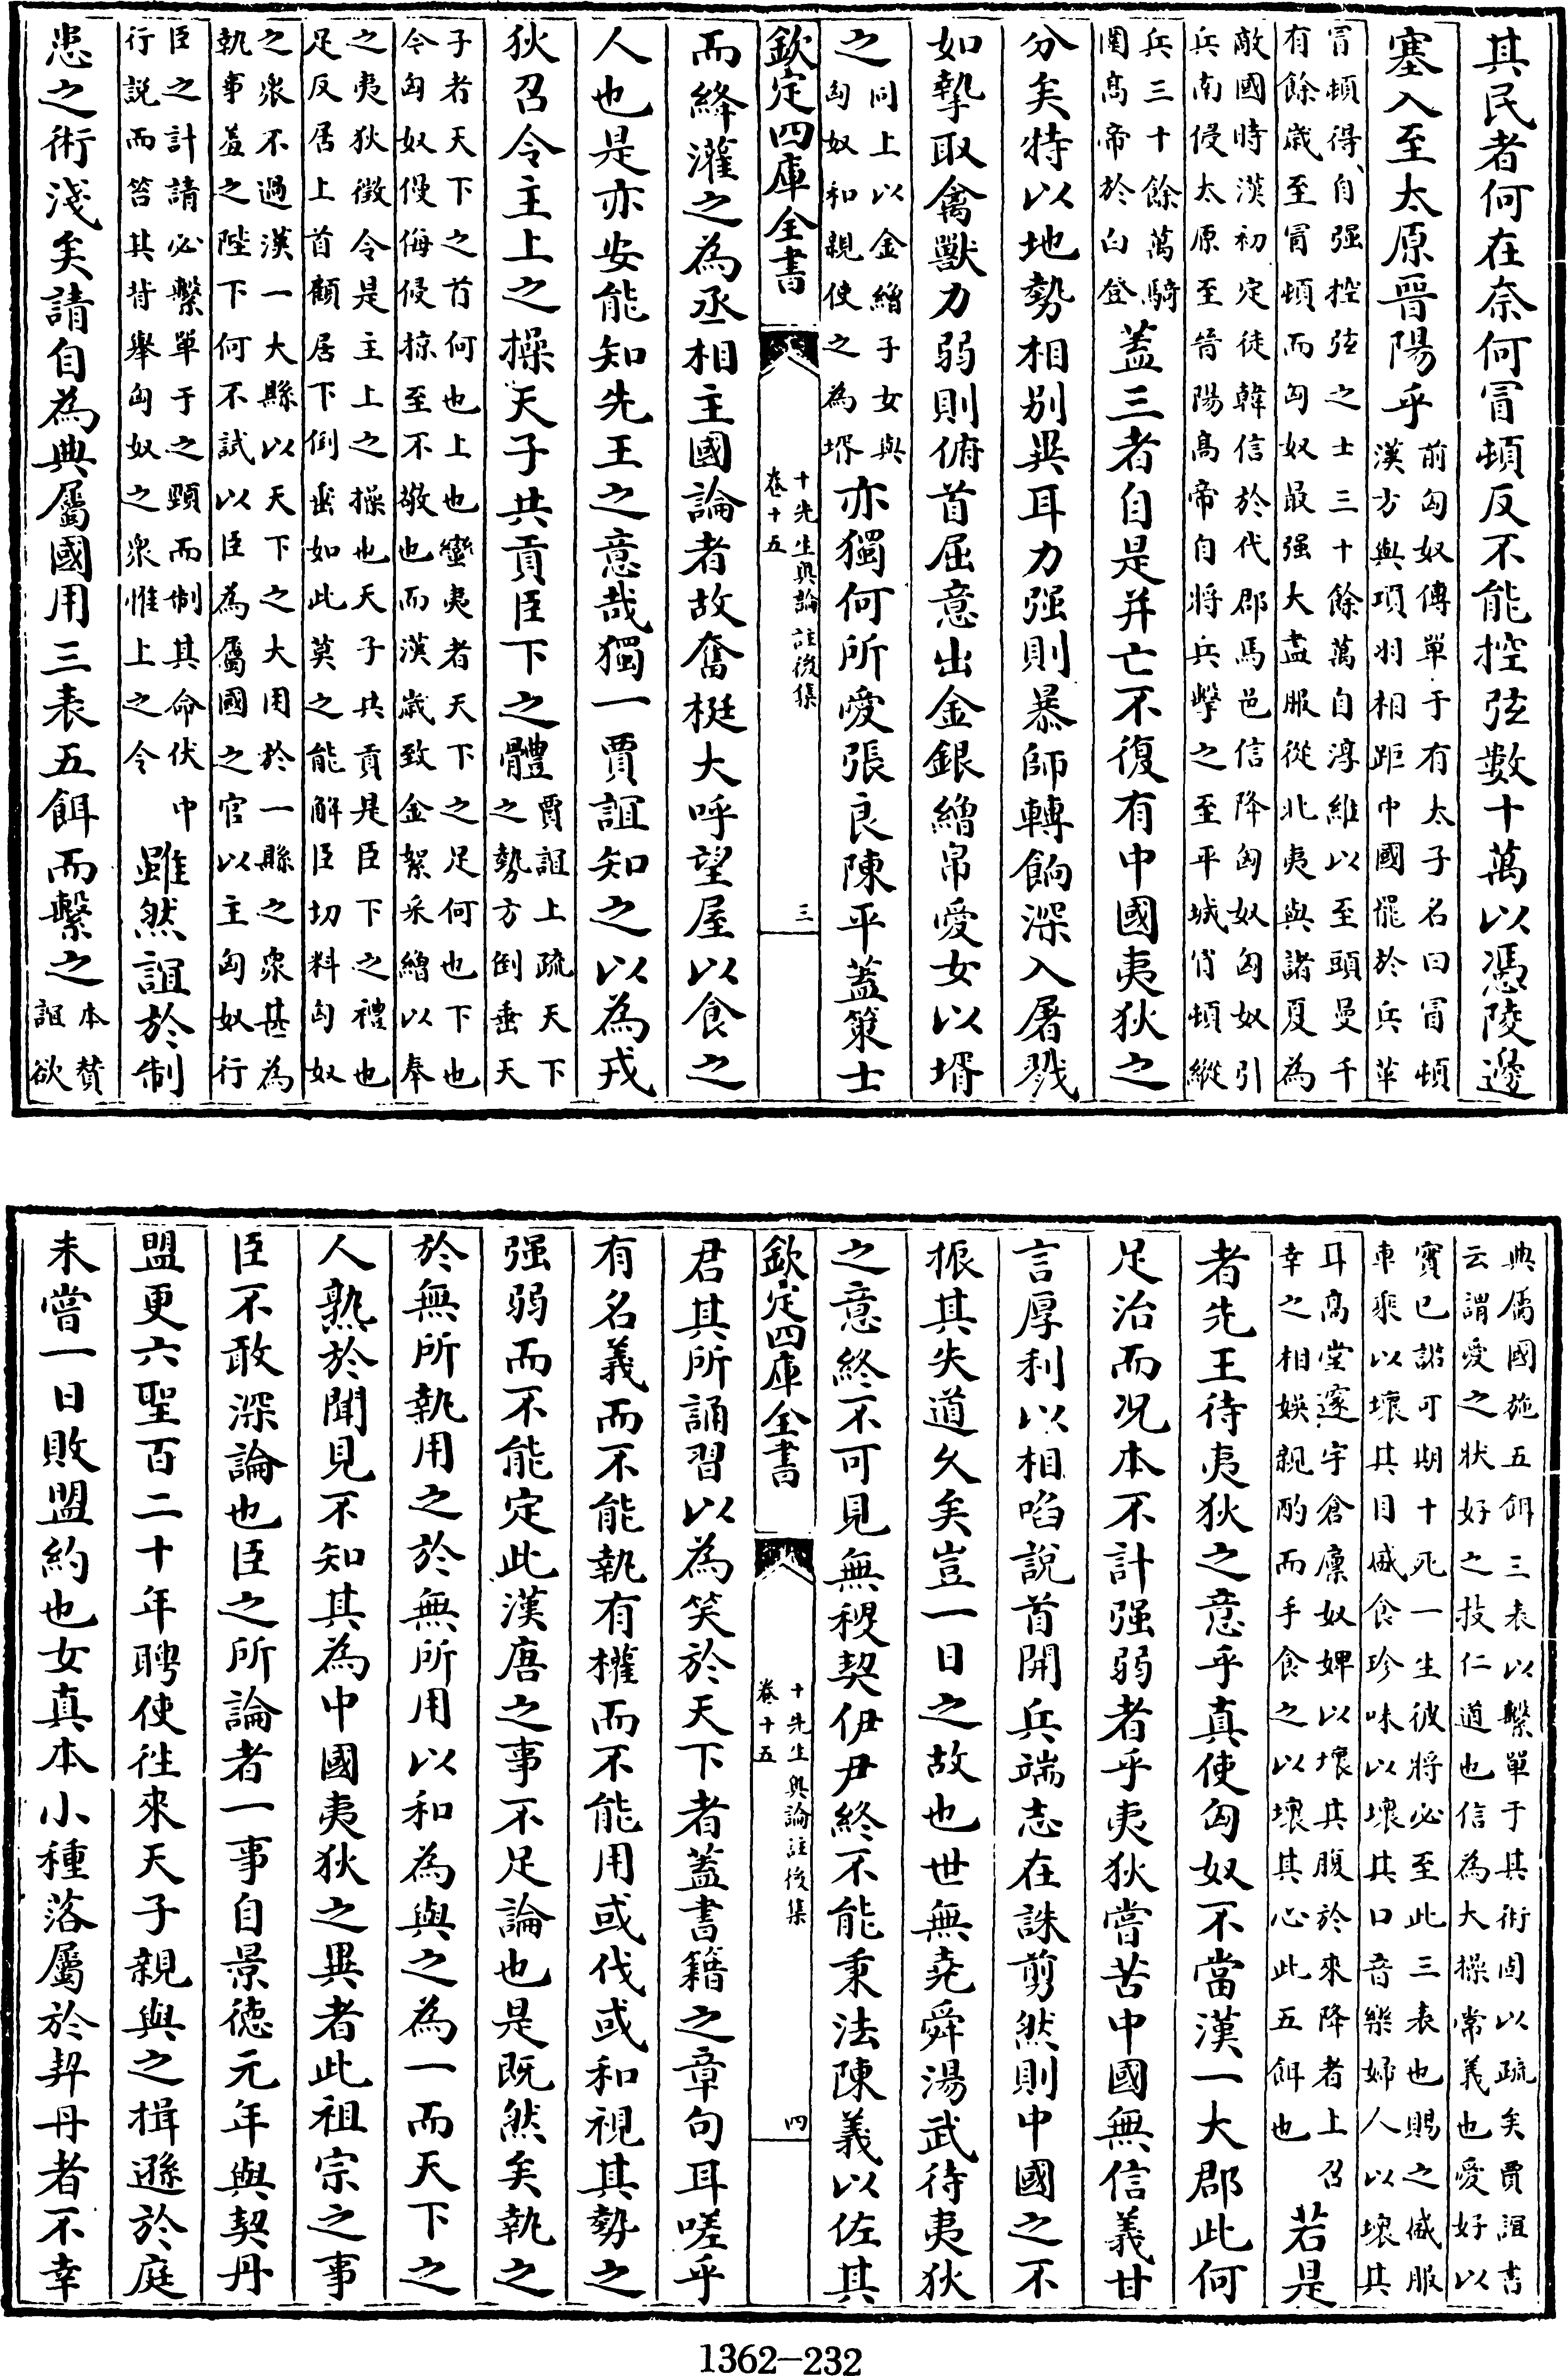 其民者何在奈何冒頓反不能控弦數十萬以憑陵邊
塞入至太原晉陽乎前匈奴傳單于有太子名曰冒頓漢方與項羽相距中國罷於兵革
冒頓得自强控弦之士三十餘萬自淳維以至頭曼千有餘歲至冒頓而匈奴最强大盡服從北夷與諸夏為
敵國時漢初定徒韓信於代郡馬邑信降匈奴匈奴引兵南侵太原至晉陽髙帝自將兵擊之至平城冒頓縱
兵三十餘萬騎圍髙帝於白登蓋三者自是并亡不復有中國夷狄之
分矣特以地勢相别異耳力强則暴師轉餉深入屠戮
如摯取禽獸力弱則俯首屈意出金銀繒帛愛女以壻
之同上以金繒子女與匈奴和親使之為壻亦獨何所愛張良陳平蓋策士
欽定四庫全書
十先生奥論註後集
卷十五
三
而絳灌之為丞相主國論者故奮梃大呼望屋以食之
人也是亦安能知先王之意哉獨一賈誼知之以為戎
狄召令主上之操天子共貢臣下之體賈誼上疏天下之勢方倒垂天
子者天下之首何也上也蠻夷者天下之足何也下也今匈奴嫚侮侵掠至不敬也而漢歳致金絮采繒以奉
之夷狄徴令是主上之操也天子共貢是臣下之禮也足反居上首顧居下倒垂如此莫之能解臣切料匈奴
之衆不過漢一大縣以天下之大用於一縣之衆甚為執事羞之陛下何不試以臣為屬國之官以主匈奴行
臣之計請必繫單于之頸而制其命伏中行説而笞其背舉匈奴之衆惟上之令雖然誼於制
患之術淺矣請自為典屬國用三表五餌而繫之本賛誼欲
典屬國施五餌三表以繫單于其術固以疏矣賈誼書云謂愛之狀好之技仁道也信為大操常義也愛好以
實已諾可期十死一生彼將必至此三表也賜之盛服車乘以壞其目盛食珍味以壞其口音樂婦人以壞其
耳髙堂邃宇倉廩奴婢以壞其腹於來降者上召幸之相娛親酌而手食之以壞其心此五餌也若是
者先王待夷狄之意乎真使匈奴不當漢一大郡此何
足治而况本不計强弱者乎夷狄嘗苦中國無信義甘
言厚利以相啗説首開兵端志在誅剪然則中國之不
振其失道久矣豈一日之故也世無堯舜湯武待夷狄
之意終不可見無稷契伊尹終不能秉法陳義以佐其
欽定四庫全書
十先生奥論註後集
卷十五
四
君其所誦習以為笑於天下者蓋書籍之章句耳嗟乎
有名義而不能執有權而不能用或伐或和視其勢之
强弱而不能定此漢唐之事不足論也是既然矣執之
於無所執用之於無所用以和為與之為一而天下之
人熟於聞見不知其為中國夷狄之異者此祖宗之事
臣不敢深論也臣之所論者一事自景徳元年與契丹
盟更六聖百二十年聘使徃來天子親與之揖遜於庭
未嘗一日敗盟約也女真本小種落屬於契丹者不幸
1362-232